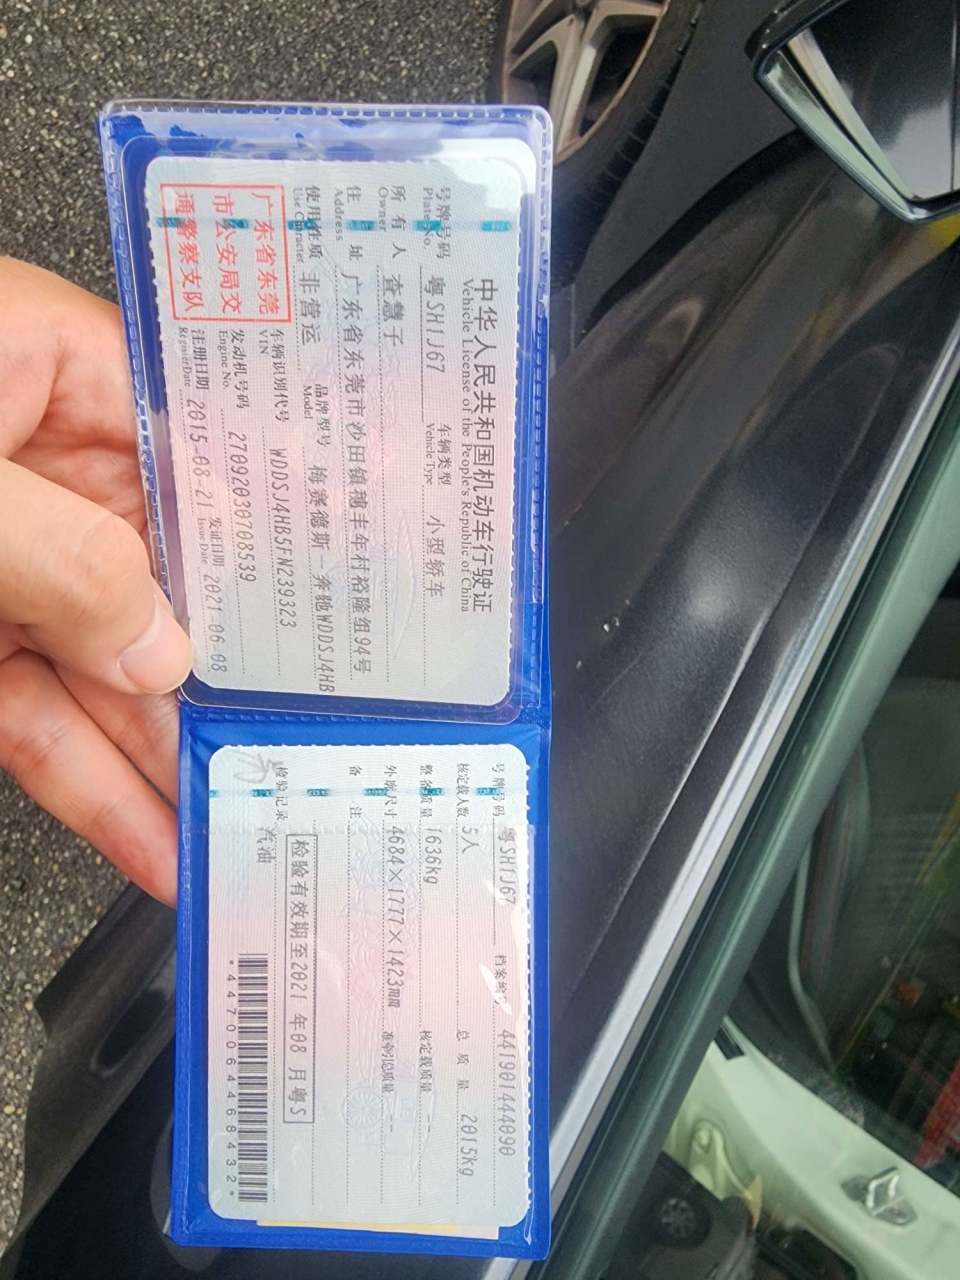 中华人民共和国机动车行驶证
Vehicle License of the People's Republic of China
号牌号码 粤SH1J67 车辆类型 小型轿车
Plate No. Vehicle Type
所有人 查慧子
Owner
住址 广东省东莞市沙田镇穗丰年村裕隆组94号
Address
使用性质 非营运 品牌型号 梅赛德斯-奔驰WDDSJ4HB
Use Character Model
广东省东莞
市公安局交
通警察支队
车辆识别代号 WDDSJ4HB5FN239323
VIN
发动机号码 27092030708539
Engine No.
注册日期 2015-08-21 发证日期 2021-06-08
Register Date Issue Date
号牌号码 粤SH1J67 档案编号 441901444090
核定载人数 5人 总质量 2015kg
整备质量 1636kg 核定载质量 --
外廓尺寸 4684×1777×1423mm 准牵引总质量 --
备注
检验有效期至2021年08月粤S
检验记录
汽油
*4470064468432*